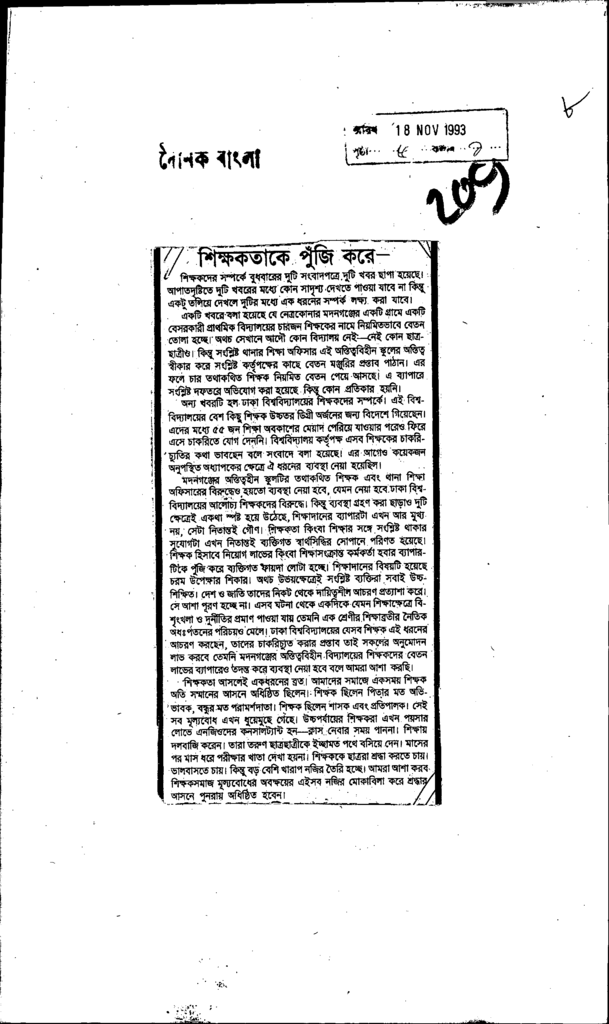 দৈনিক বাংলা
তারিখ 18 NOV 1993
পৃষ্ঠা... ৫ ... কলাম ..
শিক্ষকতাকে পুঁজি করে—
শিক্ষকদের সম্পর্কে বুধবারের দুটি সংবাদপত্রে দুটি খবর ছাপা হয়েছে।
আপাতদৃষ্টিতে দুটি খবরের মধ্যে কোন সাদৃশ্য দেখতে পাওয়া যাবে না কিন্তু
একটু তলিয়ে দেখলে দুটির মধ্যে এক ধরনের সম্পর্ক লক্ষ্য করা যাবে।
একটি খবরে বলা হয়েছে যে নেত্রকোনার মদনগঞ্জের একটি গ্রামে একটি
বেসরকারী প্রাথমিক বিদ্যালয়ের চারজন শিক্ষকের নামে নিয়মিতভাবে বেতন
তোলা হচ্ছে। অথচ সেখানে আদৌ কোন বিদ্যালয় নেই—নেই কোন ছাত্র-
ছাত্রীও। কিন্তু সংশ্লিষ্ট থানার শিক্ষা অফিসার এই অস্তিত্ববিহীন স্কুলের অস্তিত্ব
স্বীকার করে সংশ্লিষ্ট কর্তৃপক্ষের কাছে বেতন মঞ্জুরির প্রস্তাব পাঠান। এর
ফলে চার তথাকথিত শিক্ষক নিয়মিত বেতন পেয়ে আসছে। এ ব্যাপারে
সংশ্লিষ্ট দফতরে অভিযোগ করা হয়েছে কিন্তু কোন প্রতিকার হয়নি।
অন্য খবরটি হল ঢাকা বিশ্ববিদ্যালয়ের শিক্ষকদের সম্পর্কে। এই বিশ্ব-
বিদ্যালয়ের বেশ কিছু শিক্ষক উচ্চতর ডিগ্রী অর্জনের জন্য বিদেশে গিয়েছেন।
এদের মধ্যে ৫৫ জন শিক্ষা অবকাশের মেয়াদ পেরিয়ে যাওয়ার পরেও ফিরে
এসে চাকরিতে যোগ দেননি। বিশ্ববিদ্যালয় কর্তৃপক্ষ এসব শিক্ষকের চাকরি-
চ্যুতির কথা ভাবছেন বলে সংবাদে বলা হয়েছে। এর আগেও কয়েকজন
অনুপস্থিত অধ্যাপকের ক্ষেত্রে ঐ ধরনের ব্যবস্থা নেয়া হয়েছিল।
মদনগঞ্জের অস্তিত্বহীন স্কুলটির তথাকথিত শিক্ষক এবং থানা শিক্ষা
অফিসারের বিরুদ্ধেও হয়তো ব্যবস্থা নেয়া হবে, যেমন নেয়া হবে ঢাকা বিশ্ব-
বিদ্যালয়ের আলোচ্য শিক্ষকদের বিরুদ্ধে। কিন্তু ব্যবস্থা গ্রহণ করা ছাড়াও দুটি
ক্ষেত্রেই একথা স্পষ্ট হয়ে উঠেছে, শিক্ষাদানের ব্যাপারটা এখন আর মুখ্য
নয়, সেটা নিতান্তই গৌণ। শিক্ষকতা কিংবা শিক্ষার সঙ্গে সংশ্লিষ্ট থাকার
সুযোগটা এখন নিতান্তই ব্যক্তিগত স্বার্থসিদ্ধির সোপানে পরিণত হয়েছে।
শিক্ষক হিসাবে নিয়োগ লাভের কিংবা শিক্ষাসংক্রান্ত কর্মকর্তা হবার ব্যাপার-
টিকে পুঁজি করে ব্যক্তিগত ফায়দা লোটা হচ্ছে। শিক্ষাদানের বিষয়টি হয়েছে
চরম উপেক্ষার শিকার। অথচ উভয়ক্ষেত্রেই সংশ্লিষ্ট ব্যক্তিরা সবাই উচ্চ-
শিক্ষিত। দেশ ও জাতি তাদের নিকট থেকে দায়িত্বশীল আচরণ প্রত্যাশা করে।
সে আশা পূরণ হচ্ছে না। এসব ঘটনা থেকে একদিকে যেমন শিক্ষাক্ষেত্রে বি-
শৃংখলা ও দুর্নীতির প্রমাণ পাওয়া যায় তেমনি এক শ্রেণীর শিক্ষাব্রতীর নৈতিক
অধঃপতনের পরিচয়ও মেলে। ঢাকা বিশ্ববিদ্যালয়ের যেসব শিক্ষক এই ধরনের
আচরণ করছেন, তাদের চাকরিচ্যুত করার প্রস্তাব তাই সকলের অনুমোদন
লাভ করবে তেমনি মদনগঞ্জের অস্তিত্ববিহীন বিদ্যালয়ের শিক্ষকদের বেতন
লাভের ব্যাপারেও তদন্ত করে ব্যবস্থা নেয়া হবে বলে আমরা আশা করছি।
শিক্ষকতা আসলেই একধরনের ব্রত। আমাদের সমাজে একসময় শিক্ষক
অতি সম্মানের আসনে অধিষ্ঠিত ছিলেন। শিক্ষক ছিলেন পিতার মত অভি-
ভাবক, বন্ধুর মত পরামর্শদাতা। শিক্ষক ছিলেন শাসক এবং প্রতিপালক। সেই
সব মূল্যবোধ এখন ধুয়েমুছে গেছে। উচ্চপর্যায়ের শিক্ষকরা এখন পয়সার
লোভে এনজিওদের কনসালট্যান্ট হন—ক্লাস নেবার সময় পাননা। শিক্ষায়
দলবাজি করেন। তারা তরুণ ছাত্রছাত্রীকে ইচ্ছামত পথে বসিয়ে দেন। মাসের
পর মাস ধরে পরীক্ষার খাতা দেখা হয়না। শিক্ষককে ছাত্ররা শ্রদ্ধা করতে চায়।
ভালবাসতে চায়। কিন্তু বড় বেশি খারাপ নজির তৈরি হচ্ছে। আমরা আশা করব
শিক্ষকসমাজ মূল্যবোধের অবক্ষয়ের এইসব নজির মোকাবিলা করে শ্রদ্ধার
আসনে পুনরায় অধিষ্ঠিত হবেন।